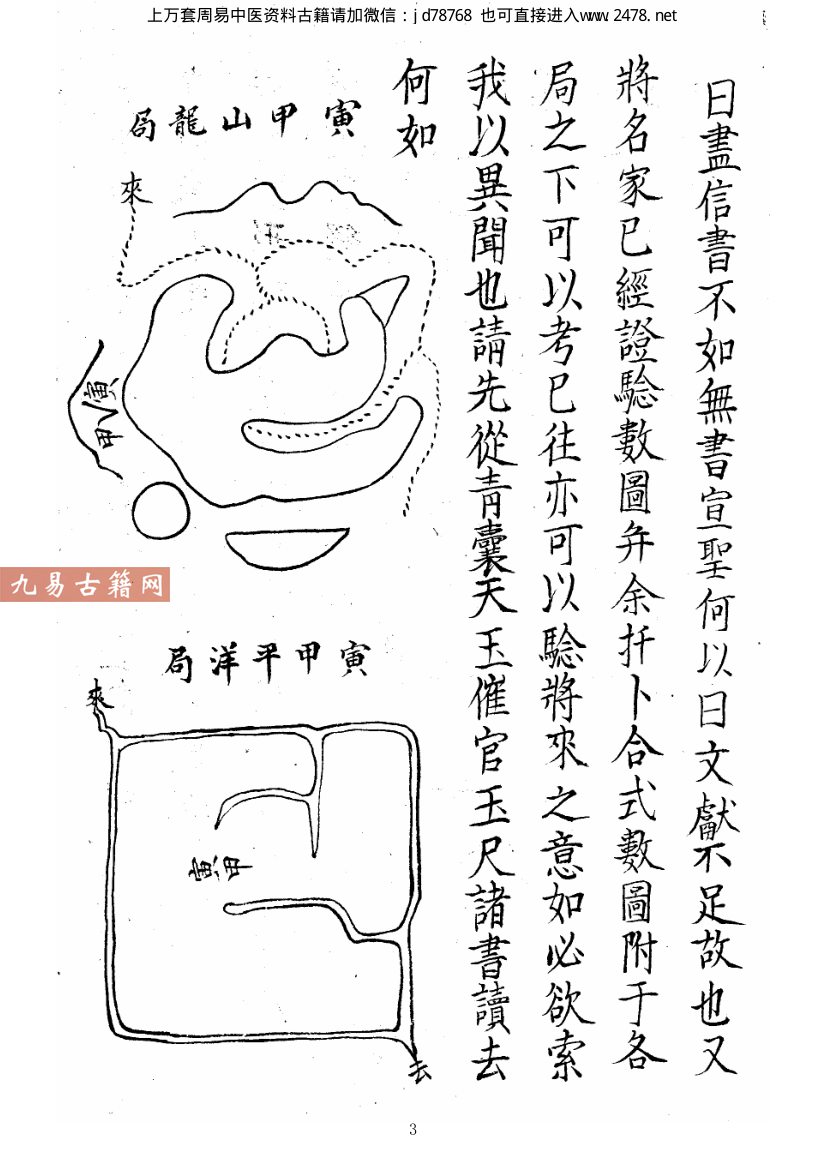 上万套周易中医资料古籍请加微信：jd78768 也可直接进入www.2478.net
曰盡信書不如無書宣聖何以曰文獻不足故也又
將名家已經證驗數圖弁余扦卜合式數圖附于各
局之下可以考已往亦可以驗將來之意如必欲索
我以異聞也請先從青囊天玉催官玉尺諸書讀去
何如
寅甲山龍局
來
寅
甲
寅甲平洋局
來
甲
寅
去
九易古籍网
3